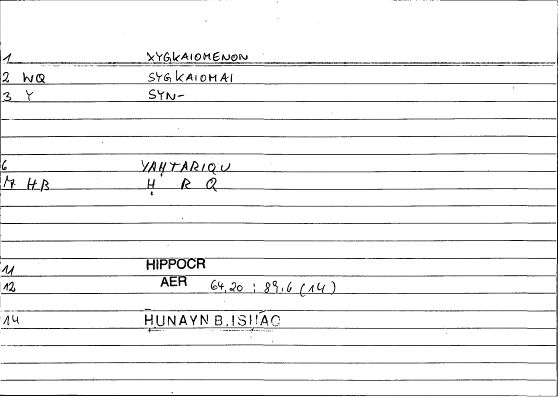 1 XYGKAIOMENON
2 WQ SYGKAIOMAI
3 Y SYN-
6 YAḤTARIQU
M HB Ḥ R Q
11 HIPPOCR
12 AER 64,20 : 89,6 (14)
14 ḤUNAYN B.ISḤĀQ